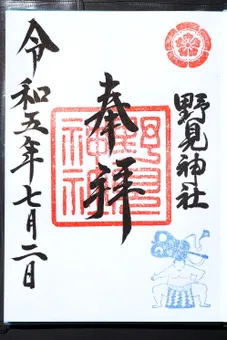 野見神社
奉拝
野見神社
令和五年七月二日